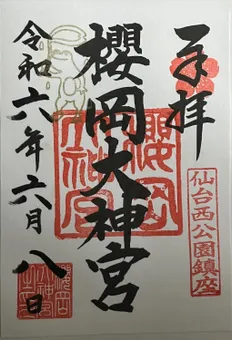 奉拝
櫻岡大神宮
令和六年六月八日
櫻岡大神宮
仙台西公園鎮座